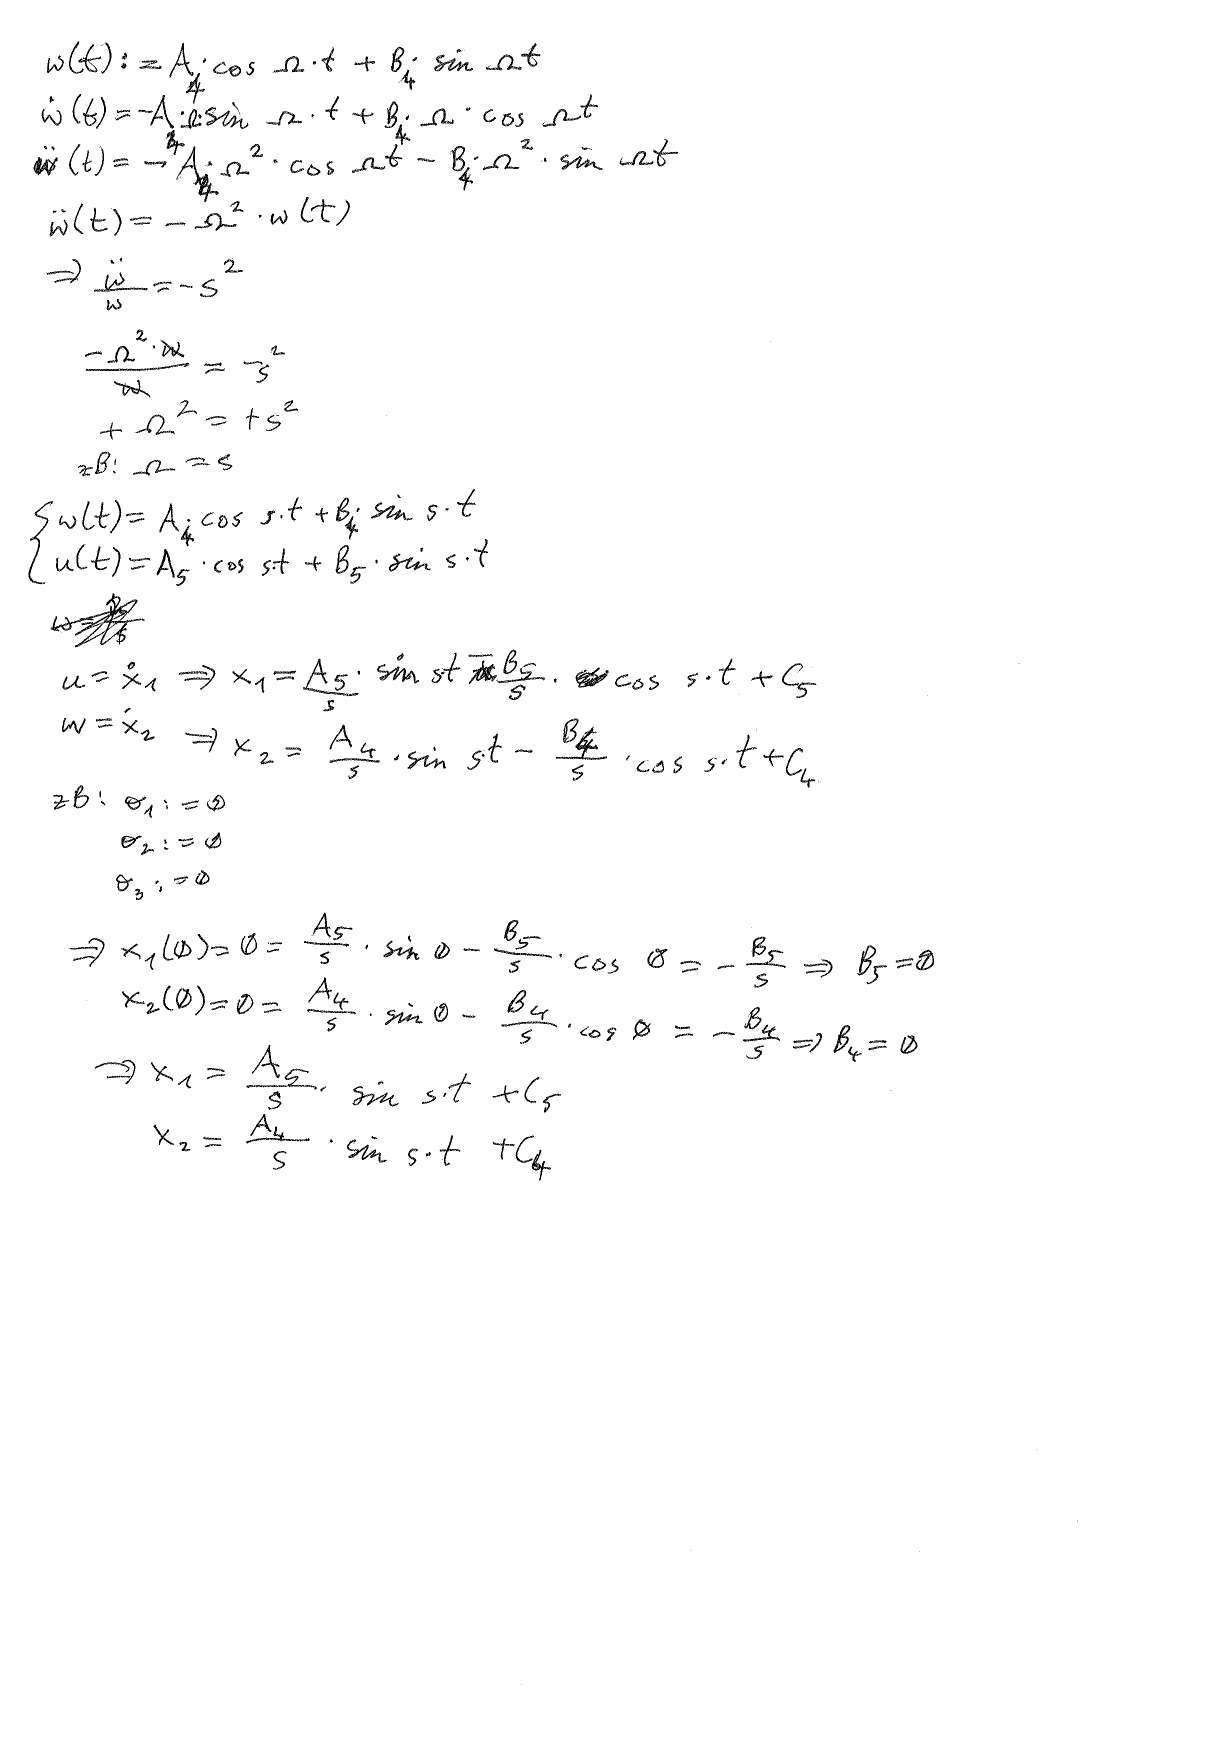 w(t) := A₄·cos Ω·t + B₄·sin Ωt
ẇ(t) = -A₄·Ω·sin Ω·t + B₄·Ω·cos Ωt
ẅ(t) = -A₄·Ω²·cos Ωt - B₄·Ω²·sin Ωt
ẅ(t) = -Ω²·w(t)
⇒ ẅ/w = -s²
-Ω²·w/w = -s²
+Ω² = +s²
zB: Ω = s
{ w(t) = A₄·cos s·t + B₄·sin s·t
u(t) = A₅·cos st + B₅·sin s·t
u = ẋ₁ ⇒ x₁ = A₅/s · sin st - B₅/s · cos s·t + C₅
w = ẋ₂ ⇒ x₂ = A₄/s · sin st - B₄/s · cos s·t + C₄
zB: σ₁ := 0
σ₂ := 0
σ₃ := 0
⇒ x₁(0) = 0 = A₅/s · sin 0 - B₅/s · cos 0 = -B₅/s ⇒ B₅ = 0
x₂(0) = 0 = A₄/s · sin 0 - B₄/s · cos 0 = -B₄/s ⇒ B₄ = 0
⇒ x₁ = A₅/s · sin s·t + C₅
x₂ = A₄/s · sin s·t + C₄